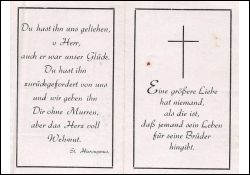 Du hast ihn uns geliehen,
o Herr,
auch er war unser Glück.
Du hast ihn
zurückgefordert von uns
und wir geben ihn
Dir ohne Murren,
aber das Herz voll
Wehmut.
St. Hieronymus.
Eine größere Liebe
hat niemand,
als die ist,
daß jemand sein Leben
für seine Brüder
hingibt.